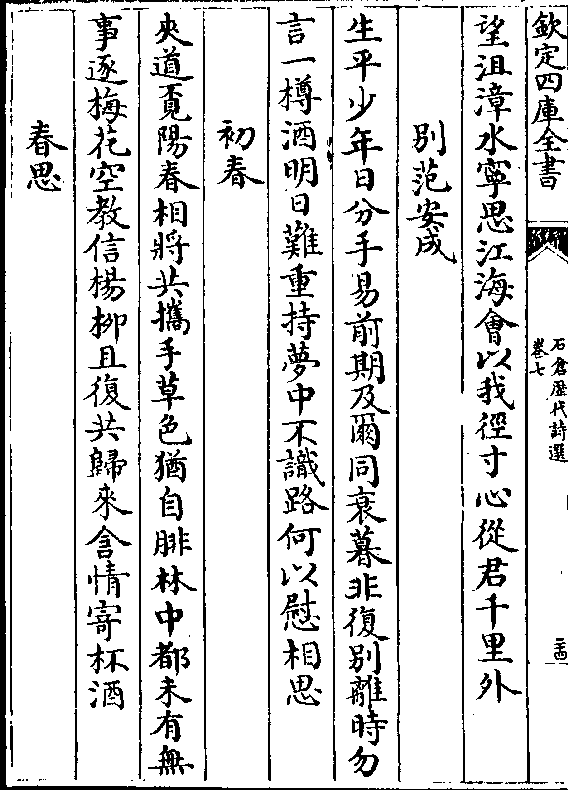 欽定四庫全書
石倉歴代詩選
卷七
二十四
望沮漳水寧思江海會以我徑寸心從君千里外
別范安成
生平少年日分手易前期及爾同衰暮非復別離時勿
言一樽酒明日難重持夢中不識路何以慰相思
初春
夾道覓陽春相將共攜手草色猶自腓林中都未有無
事逐梅花空教信楊柳且復共歸來含情寄杯酒
春思